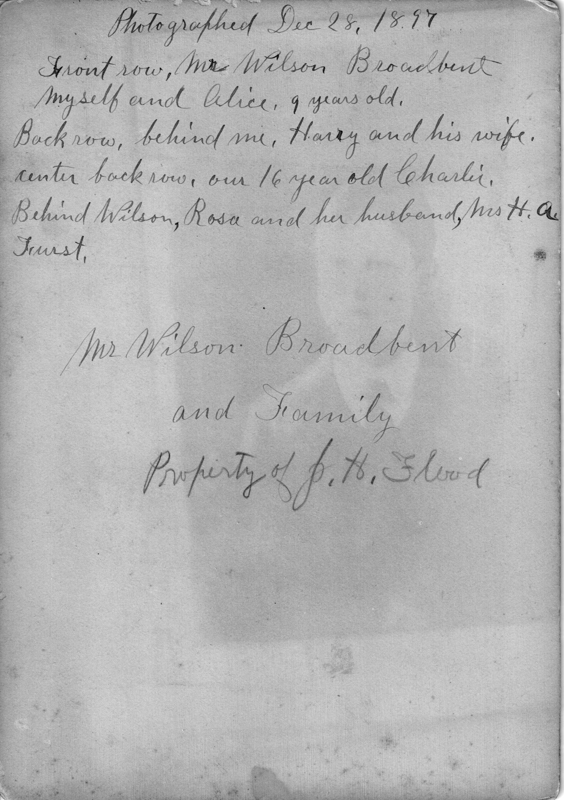 Photographed Dec 28, 1897
Front row, Mr Wilson Broadbent
Myself and Alice, 9 years old.
Back row, behind me, Harry and his wife.
center back row, our 16 year old Charlie.
Behind Wilson, Rosa and her husband, Mrs H. A.
Furst.
Mr Wilson Broadbent
and Family
Property of J. H. Flood